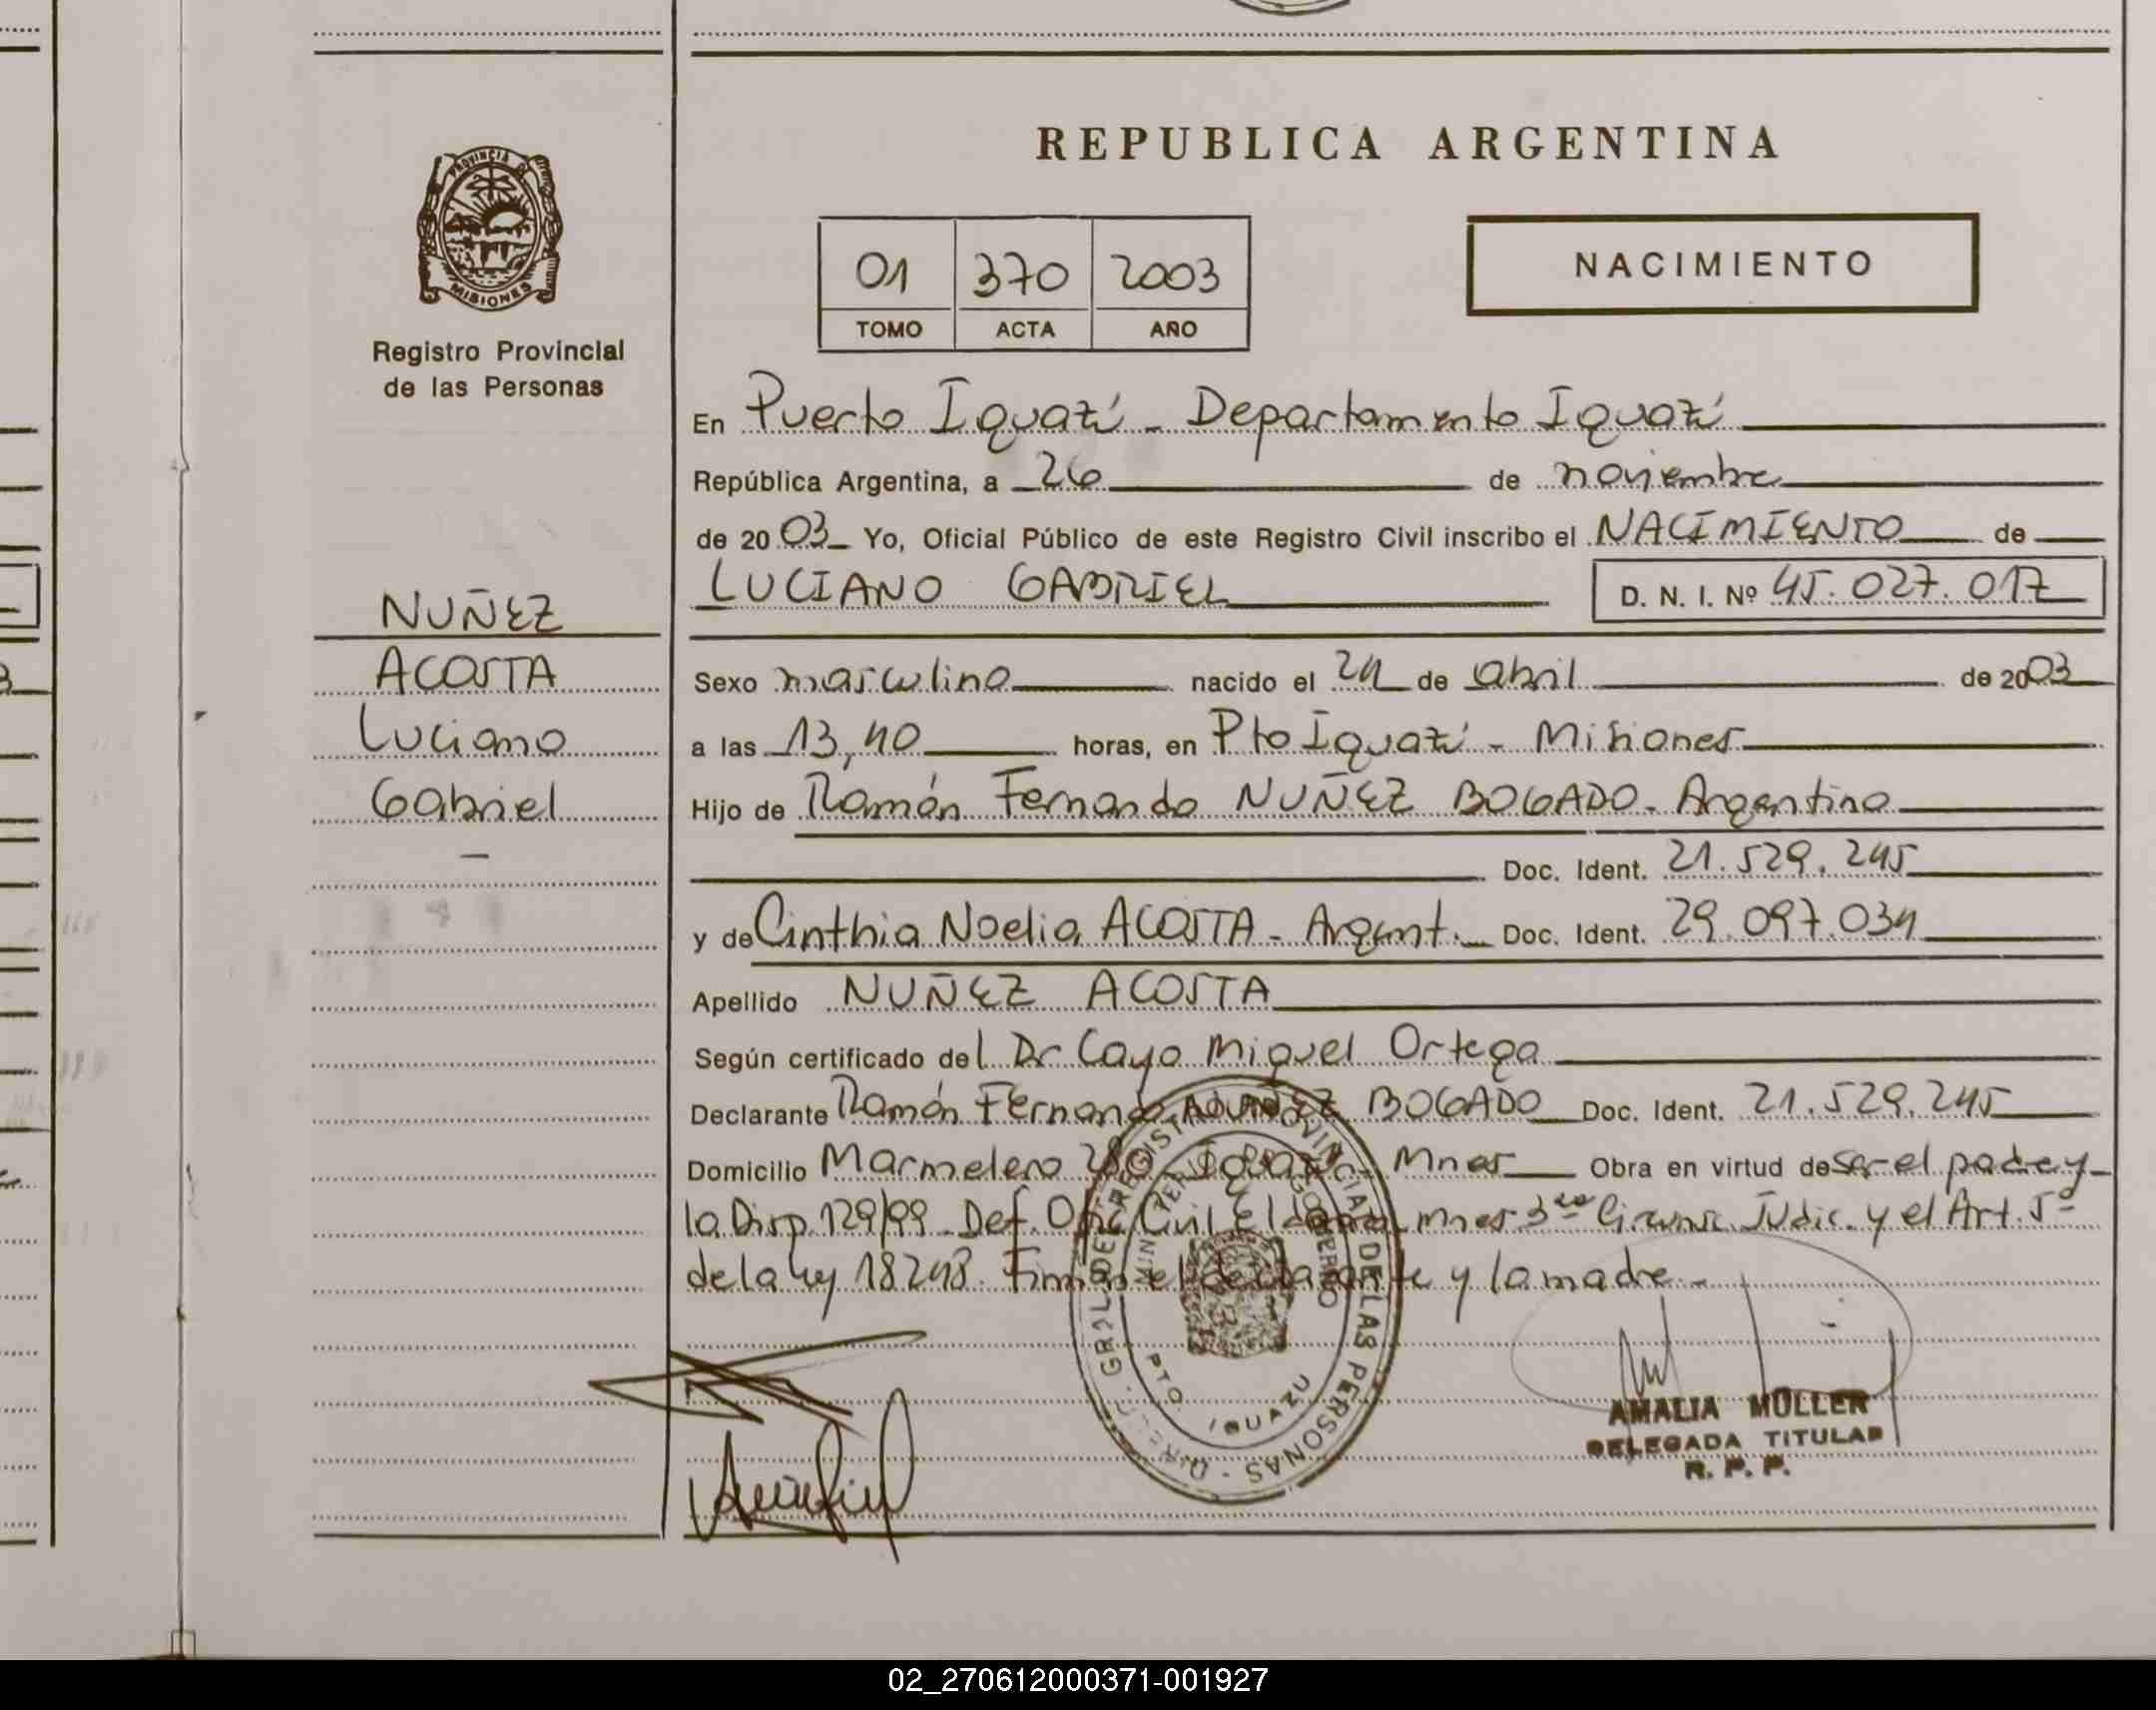 REPUBLICA ARGENTINA
PROVINCIA DE
MISIONES
Registro Provincial
de las Personas
01 370 2003
TOMO ACTA AÑO
NACIMIENTO
En Puerto Iguazú - Departamento Iguazú
República Argentina, a 26 de noviembre
de 2003 Yo, Oficial Público de este Registro Civil inscribo el NACIMIENTO de
LUCIANO GABRIEL D. N. I. Nº 45.027.017
NUÑEZ
ACOSTA
Luciano
Gabriel
Sexo masculino nacido el 24 de abril de 2003
a las 13,40 horas, en Pto Iguazú - Misiones
Hijo de Ramón Fernando NUÑEZ BOGADO - Argentino
Doc. Ident. 21.529.245
y de Cinthia Noelia ACOSTA - Argent. Doc. Ident. 29.097.034
Apellido NUÑEZ ACOSTA
Según certificado del Dr Cayo Miguel Ortega
Declarante Ramón Fernando NUÑEZ BOGADO Doc. Ident. 21.529.245
Domicilio Marmelero Iguazú - Mnes Obra en virtud de ser el padre y
la Disp. 129/99 Def. Ofic. Civil Eldorado Mnes 3ra Circunsc. Judic. y el Art. 5º
de la ley 18248. Firman el declarante y la madre -
REGISTRO PROVINCIAL DE LAS PERSONAS
GOBIERNO
PTO IGUAZU
AMALIA MÜLLER
DELEGADA TITULAR
R. P. P.
02_270612000371-001927